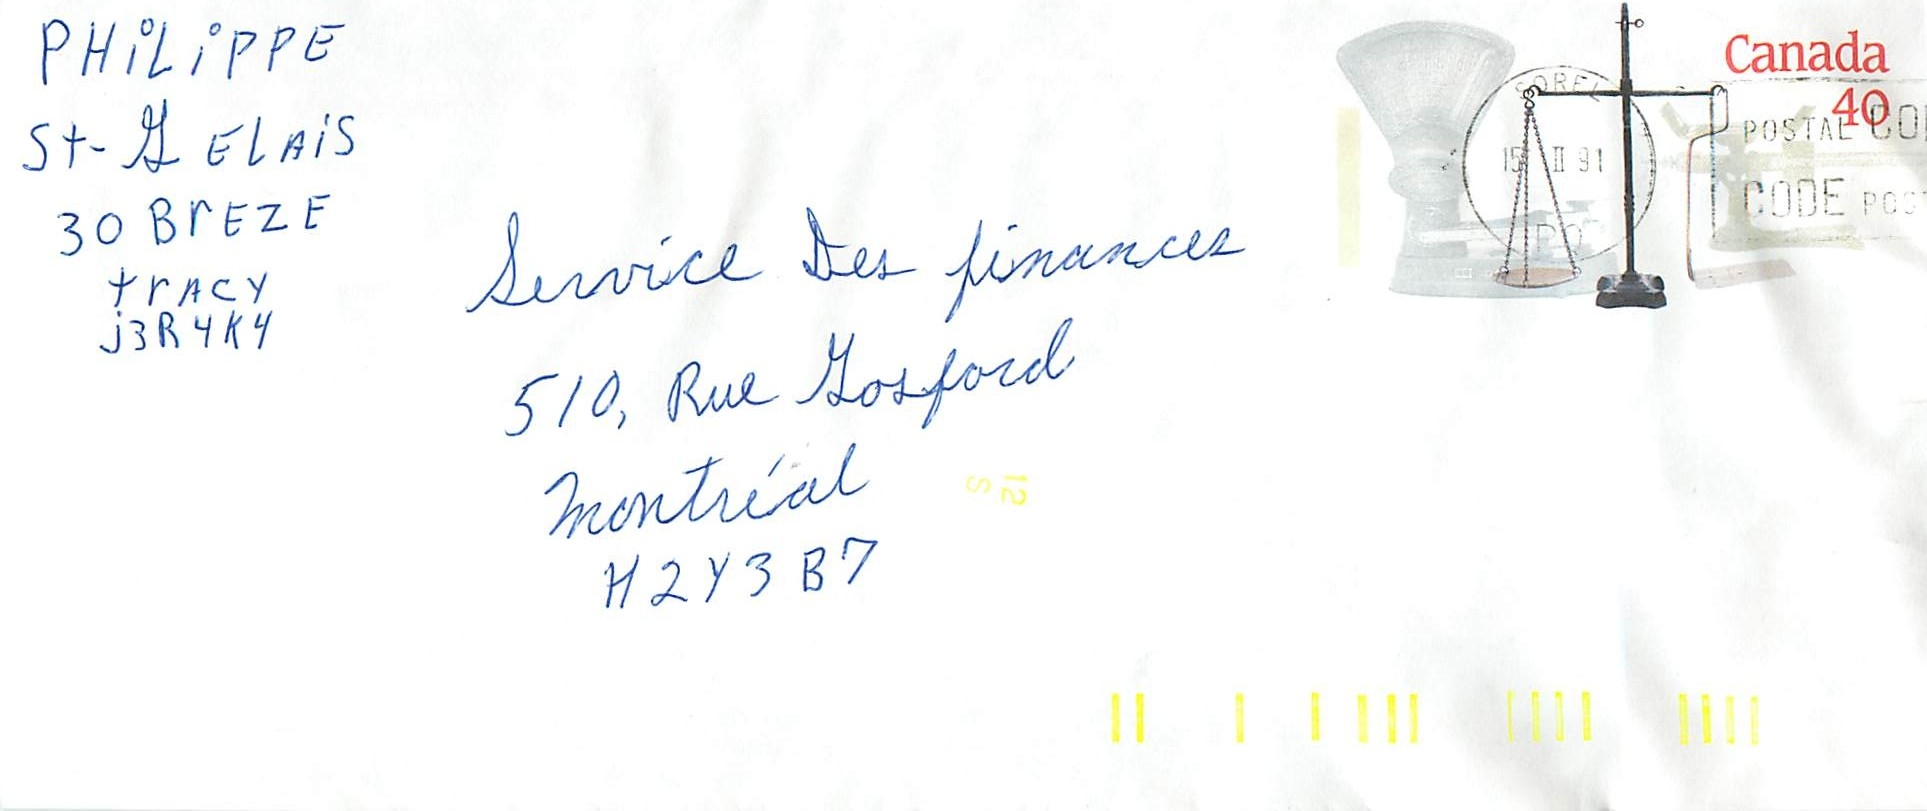 PHiLiPPE
St-GELAiS
30 BrEZE
trACY
j3R4K4
Service Des finances
510, Rue Gosford
Montréal
H2Y3B7
Canada
40
SOREL
15 II 91
PQ
POSTAL
CODE
12
S